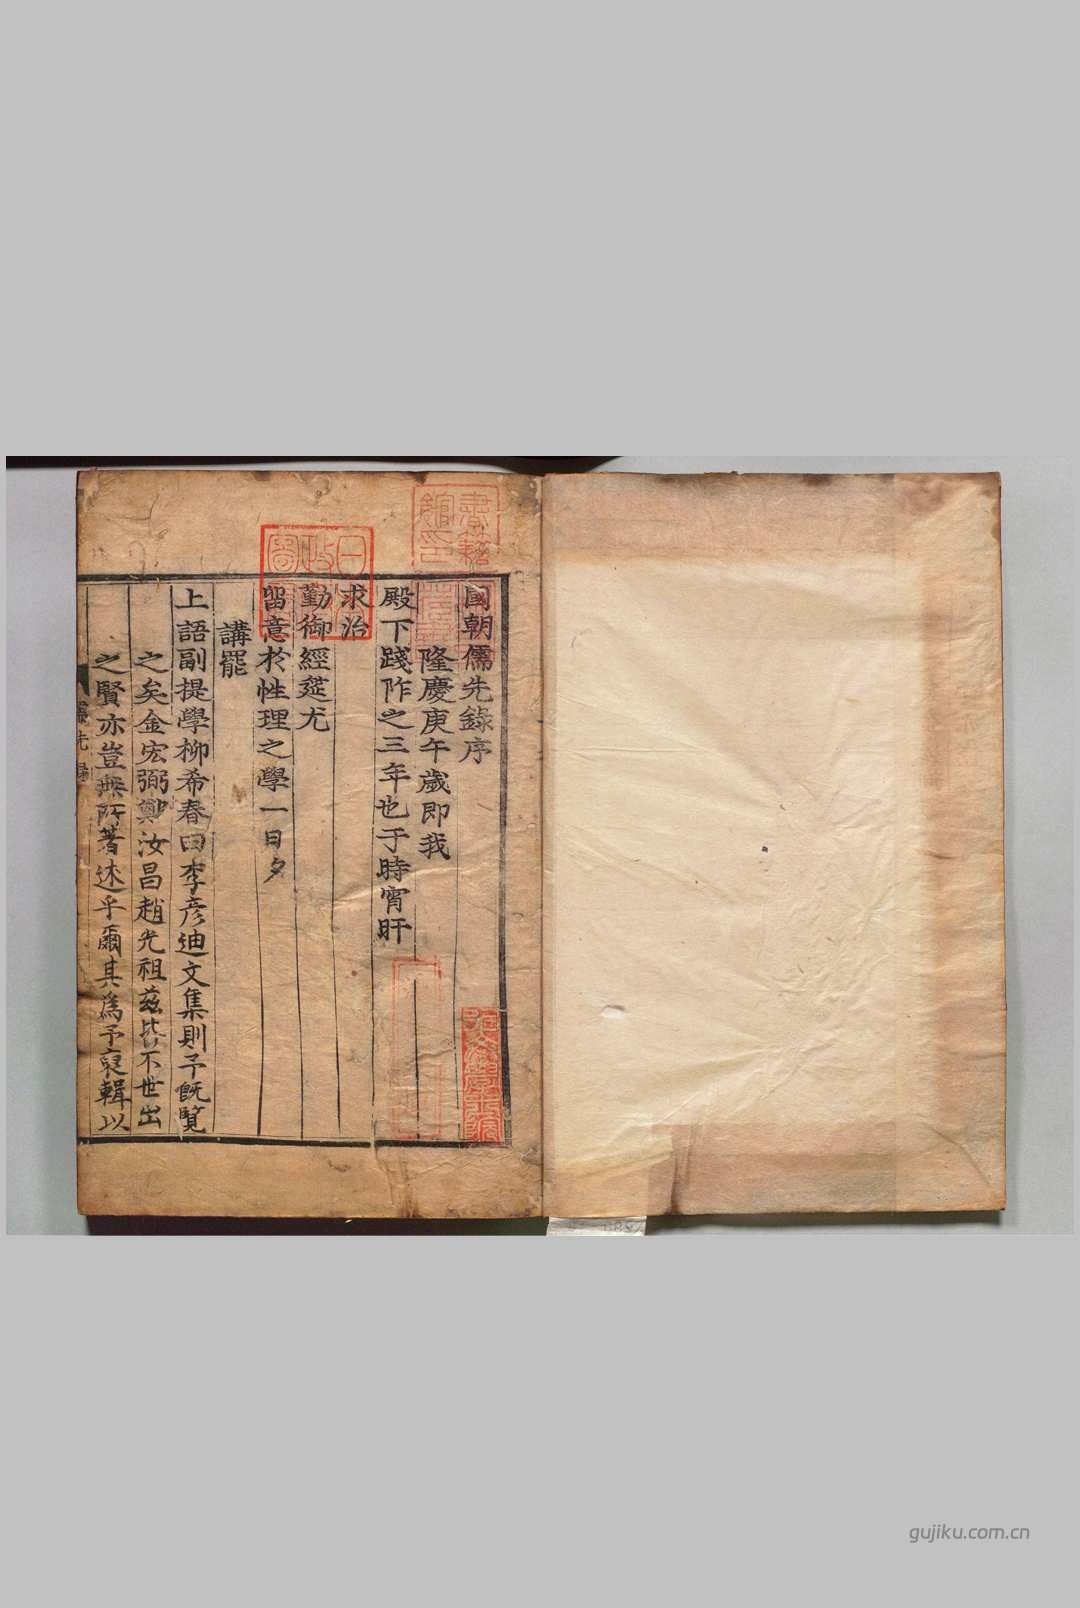 國朝儒先錄序
隆慶庚午歲即我
殿下踐阼之三年也于時宵旰
求治
勤御經筵尤
留意於性理之學一日夕
講罷
上語副提學柳希春曰李彦迪文集則予旣覽
之矣金宏弼鄭汝昌趙光祖茲皆不世出
之賢亦豈無所著述乎爾其爲予裒輯以
儒先錄
gujiku.com.cn